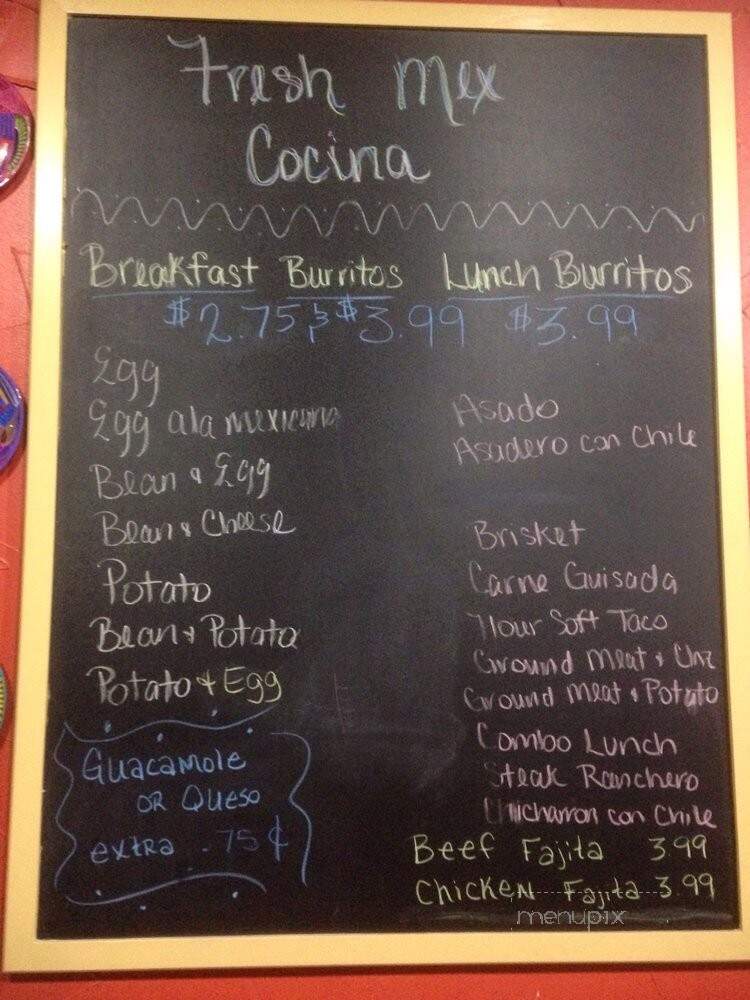 Fresh Mex
Cocina
Breakfast Burritos
$2.75 & $3.99
Egg
Egg ala mexicana
Bean & Egg
Bean & Cheese
Potato
Bean & Potato
Potato & Egg
Guacamole
or Queso
extra .75¢
Lunch Burritos
$3.99
Asado
Asadero con Chile
Brisket
Carne Guisada
Flour Soft Taco
Ground Meat &
Ground Meat & Potato
Combo Lunch
Steak Ranchero
Chicharron con Chile
Beef Fajita 3.99
Chicken Fajita 3.99
menupix